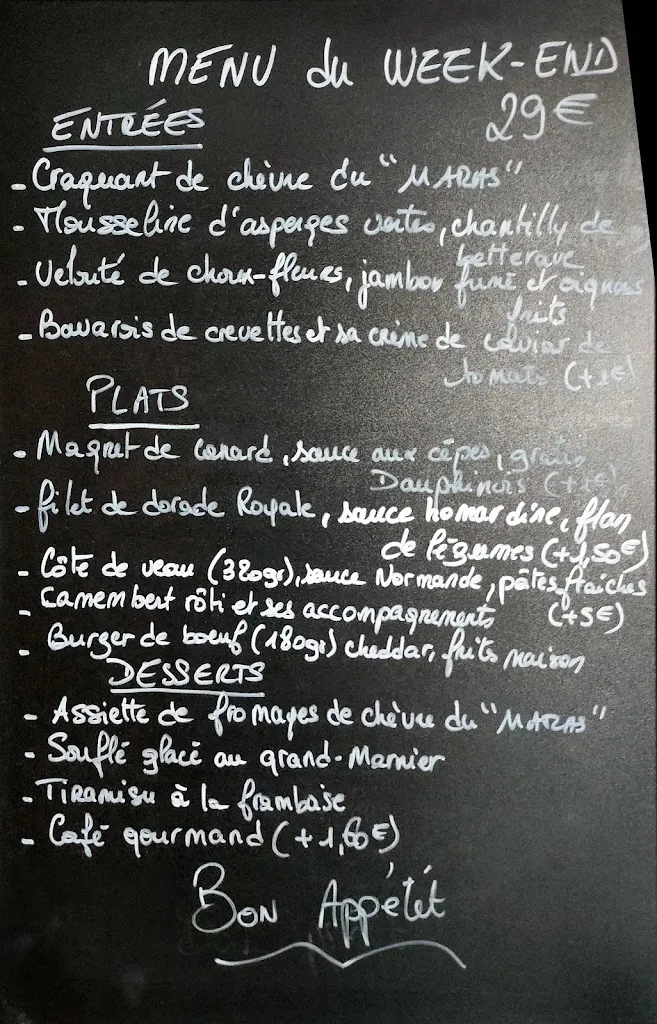 MENU du WEEK-END
29€
ENTRÉES
- Craquant de chèvre du "MARAS"
- Mousseline d'asperges vertes, chantilly de
betterave
- Velouté de choux-fleurs, jambon fumé et oignons
frits
- Bavarois de crevettes et sa crème de caviar de
tomate (+1€)
PLATS
- Magret de canard, sauce aux cèpes, gratin
Dauphinois
- filet de dorade Royale, sauce homardine, flan
de légumes (+1,50€)
- Côte de veau (320gr), sauce Normande, pâtes fraîches
(+5€)
- Camembert rôti et ses accompagnements
- Burger de boeuf (180gr) cheddar, frits maison
DESSERTS
- Assiette de fromages de chèvre du "MARAS"
- Soufflé glacé au grand-Marnier
- Tiramisu à la framboise
- Café gourmand (+1,60€)
BON Appétit